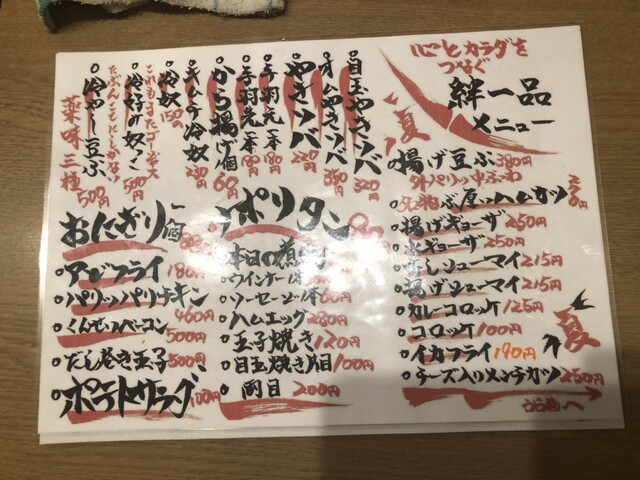 心とカラダを
つなぐ
絆一品
メニュー
夏
揚げ豆ふ 380円
外パリッ中ふわ
厚いハムカツ
揚げギョーザ 250円
水ギョーザ 250円
蒸しシューマイ 215円
揚げシューマイ 215円
カレーコロッケ 125円
コロッケ 100円
イカフライ 190円
チーズ入りメンチカツ 250円
うら面へ
夏
目玉やきソバ 320円
オムやきソバ 350円
やきソバ 220円
手羽元一本 180円
手羽先一本 180円
から揚げ一個 60円
キムチ冷奴 230円
冷奴 150円
冷好み奴っこ 500円
これもまたゴージャス
冷やし豆ふ 500円
たぶんここにしかない
薬味三種
ナポリタン
本日の煮
ウインナー一本
ソーセージ一本
ハムエッグ 280円
玉子焼き 120円
目玉焼き片目 100円
両目 200円
おにぎり一個
アジフライ 180円
パリッパリチキン 460円
くんせいベーコン 500円
だし巻き玉子 500円
ポテトサラダ